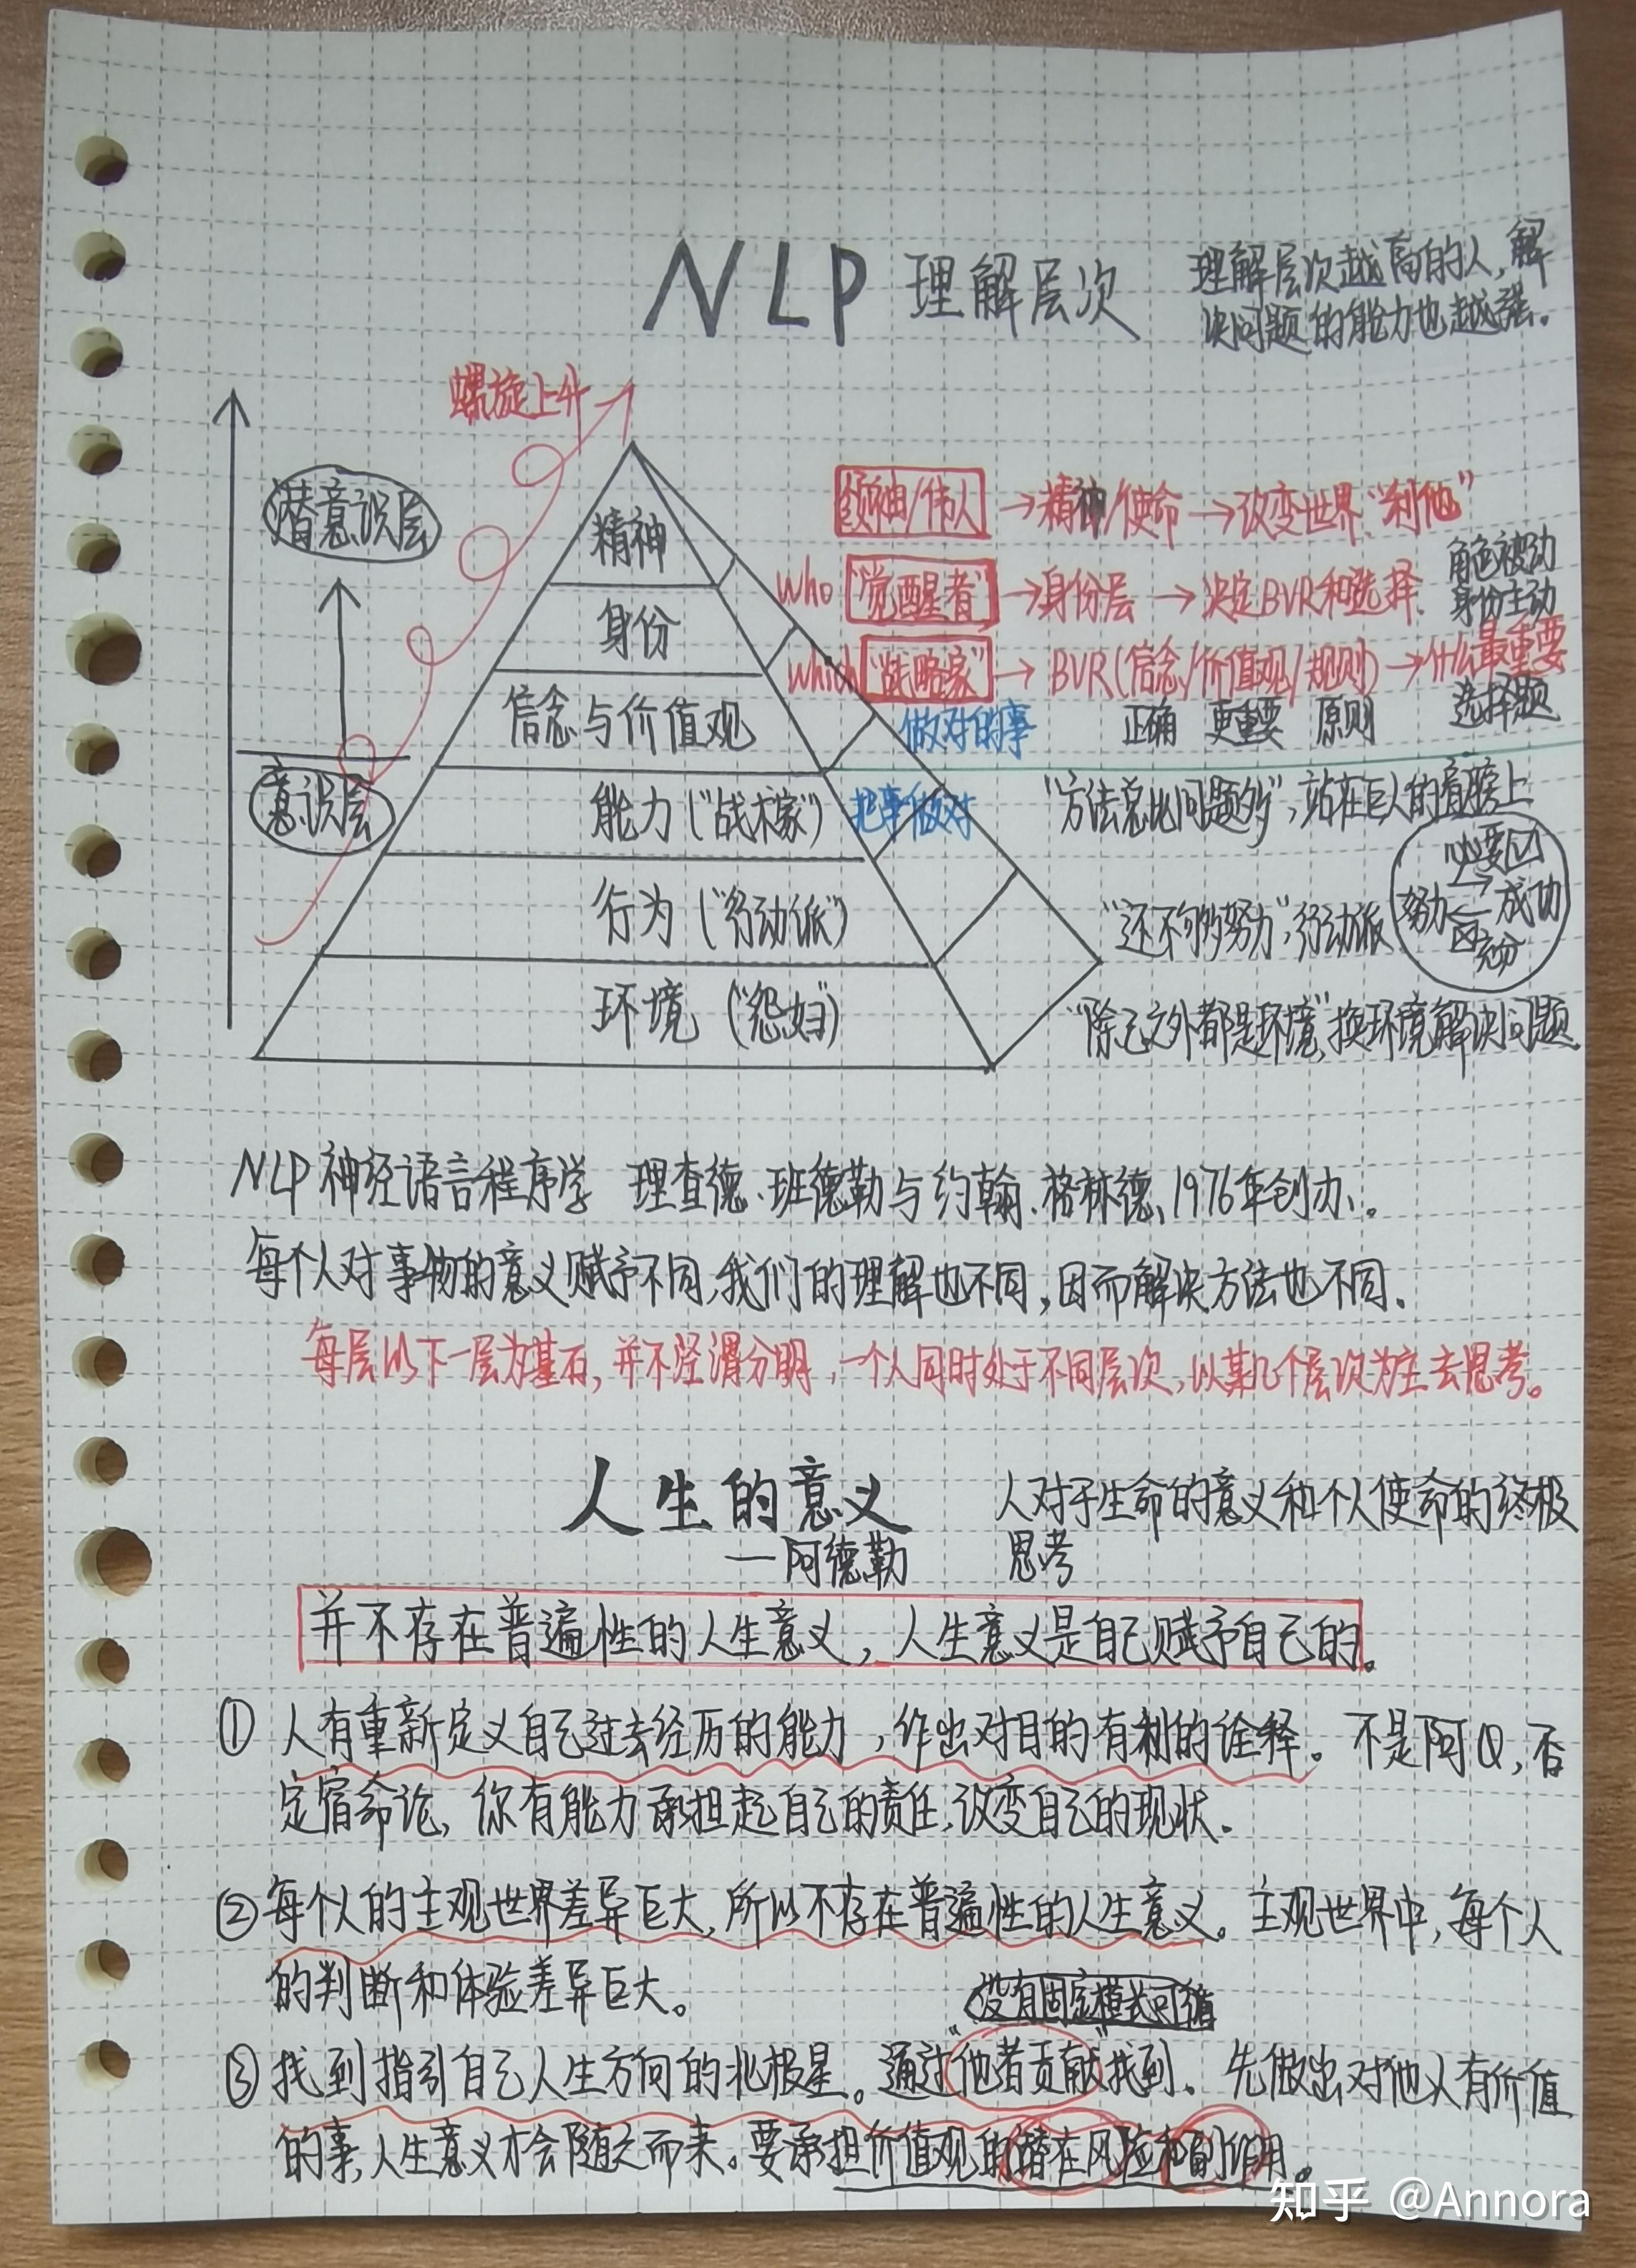 NLP 理解层次
理解层次越高的人,解
决问题的能力也越强。
螺旋上升
潜意识层
意识层
精神
身份
信念与价值观
能力("战术家")
行为("行动派")
环境("怨妇")
领袖/伟人 → 精神/使命 → 改变世界."利他"
Who "觉醒者" → 身份层 → 决定BVR和选择.
角色被动
身份主动
Which "战略家" → BVR(信念/价值观/规则) → 什么最重要
做对的事 正确 更重要 原则 选择题
把事做对 "方法总比问题多",站在巨人的肩膀上
"还不够努力",行动派
必要☑
努力 成功
☒充分
"除己之外都是环境",换环境解决问题
NLP神经语言程序学 理查德.班德勒与约翰.格林德、1976年创办.。
每个人对事物的意义赋予不同,我们的理解也不同,因而解决方法也不同.
每层以下一层为基石,并不泾渭分明,一个人同时处于不同层次,以某几个层次为主去思考。
人生的意义
—阿德勒
人对于生命的意义和个人使命的终极
思考
并不存在普遍性的人生意义,人生意义是自己赋予自己的。
① 人有重新定义自己过去经历的能力,作出对目的有利的诠释。不是阿Q,否
定宿命论,你有能力承担起自己的责任,改变自己的现状.
② 每个人的主观世界差异巨大,所以不存在普遍性的人生意义。主观世界中,每个人
的判断和体验差异巨大。
没有固定模式可循
③ 找到指引自己人生方向的北极星。通过"他者贡献"找到.先做出对他人有价值
的事,人生意义才会随之而来。要承担价值观的潜在风险和副作用。
知乎 @Annora